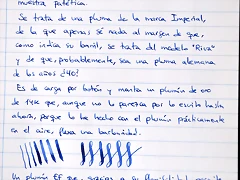 muestra patética.
Se trata de una pluma de la marca Imperial,
de la que apenas sé nada al margen de que,
como indica su barril, se trata del modelo "Riva"
y de que, probablemente, sea una pluma alemana
de los años ¿40?
Es de carga por botón y monta un plumín de oro
de 14k que, aunque no lo parezca por lo escrito hasta
ahora, porque lo he hecho con el plumín prácticamente
en el aire, flexa una barbaridad.
Un plumín EF que, gracias a su